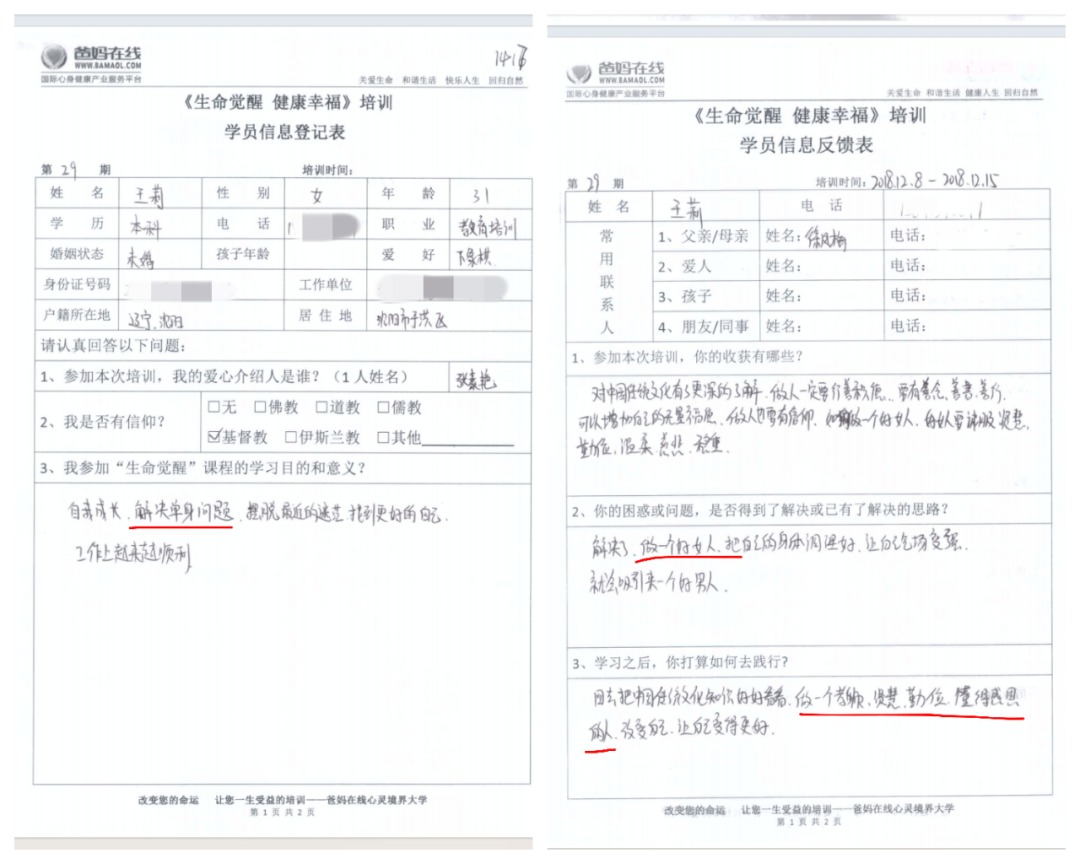 爸妈在线
WWW.BAMAOL.COM
国际心身健康产业服务平台
1417
关爱生命 和谐生活 快乐人生 回归自然
《生命觉醒 健康幸福》培训
学员信息登记表
第 29 期 培训时间：
姓 名 王莉 性 别 女 年 龄 31
学 历 本科 电 话 职 业 教育培训
婚姻状态 未婚 孩子年龄 爱 好 下象棋
身份证号码 工作单位
户籍所在地 辽宁.沈阳 居 住 地 沈阳市于洪区
请认真回答以下问题：
1、参加本次培训，我的爱心介绍人是谁？（1 人姓名） 张素艳
2、我是否有信仰？ □无 □佛教 □道教 □儒教
☑基督教 □伊斯兰教 □其他
3、我参加“生命觉醒”课程的学习目的和意义？
自我成长、解决单身问题、摆脱最近的迷茫.找到更好的自己.
工作上越来越顺利
改变您的命运 让您一生受益的培训——爸妈在线心灵境界大学
第 1 页 共 2 页
爸妈在线
WWW.BAMAOL.COM
国际心身健康产业服务平台
关爱生命 和谐生活 健康人生 回归自然
《生命觉醒 健康幸福》培训
学员信息反馈表
第 29 期 培训时间：2018.12.8 - 2018.12.15
姓 名 王莉 电 话
常用联系人
1、父亲/母亲 姓名：徐凤梅 电话：
2、爱人 姓名： 电话：
3、孩子 姓名： 电话：
4、朋友/同事 姓名： 电话：
1、参加本次培训，你的收获有哪些？
对中国传统文化有了更深的了解.做人一定要行善积德.、要有善念、善言.善行.
可以增加自己的无量福德.做人也要有信仰.做一个好女人.好女人要贤慧.
勤俭、温柔.慈悲.稳重.
2、你的困惑或问题，是否得到了解决或已有了解决的思路？
解决了.做一个好女人.把自己的身体调理好.让自己气场变强.
就会吸引来一个好男人.
3、学习之后，你打算如何去践行？
回去把中国传统文化知识好好看看.做一个孝顺、贤慧.勤俭.懂得感恩
的人.改变自己.让自己变得更好.
改变您的命运 让您一生受益的培训——爸妈在线心灵境界大学
第 1 页 共 2 页